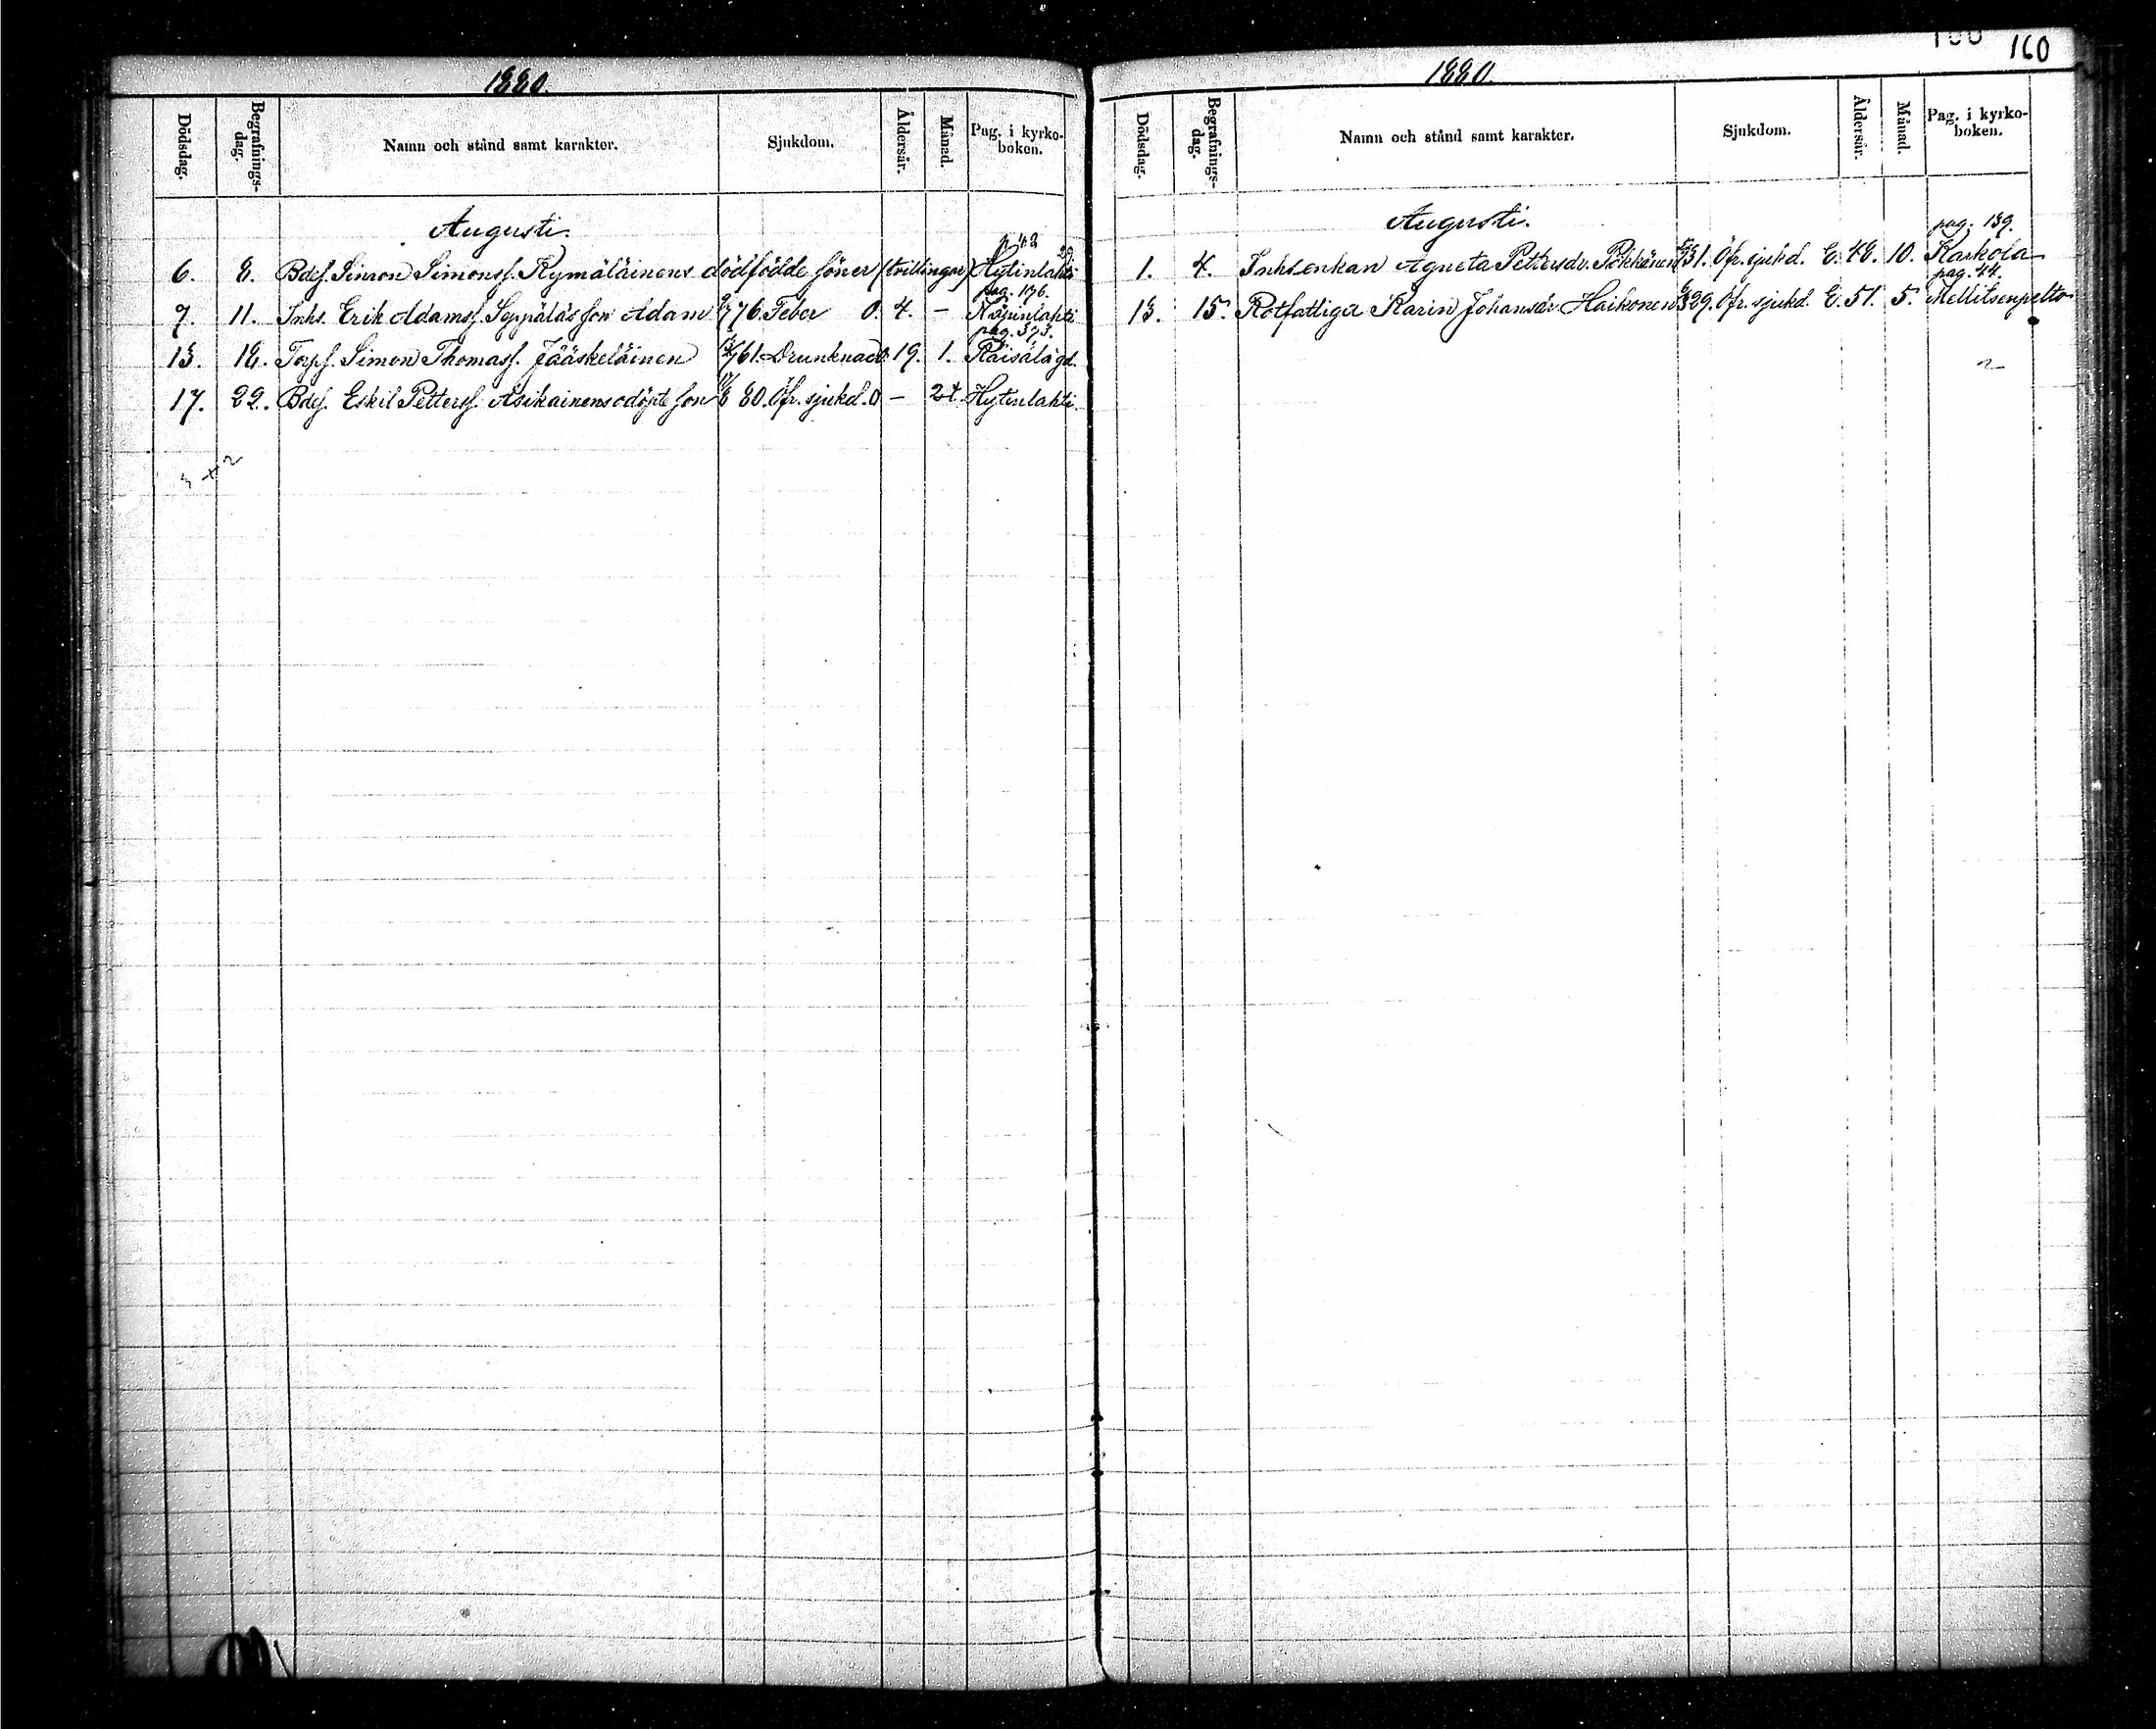 160
1880.
Dödsdag. Begrafningsdag. Namn och stånd samt karakter. Sjukdom. Åldersår. Månad. Pag. i kyrkoboken.
Augusti.
6. 8. Bdes. Simon Simonss. Kymäläinens dödfödde söner (tvillingar) Hytinlahti
pag. 176.
7. 11. Inhs. Erik Adamss. Seppäläs son Adam 76. Feber O. 4. – Käpinlahti
pag. 373.
13. 18. Torps. Simon Thomass. Jääskeläinen 61. Drunknad O. 19. 1. Räisälägd.
17. 22. Bdes. Eskil Petterss. Asikainens odöpte son 80. Öfr. sjukd. O – 2t. Hytinlahti.
4+2
1880.
Dödsdag. Begrafningsdag. Namn och stånd samt karakter. Sjukdom. Åldersår. Månad. Pag. i kyrkoboken.
Augusti.
pag. 139.
1. 4. Inhs.enkan Agneta Pettersdr. Pökkönen 31. Öfr. sjukd. E. 48. 10. Karkola
pag. 44.
13. 15. Rotfattiga Karin Johansdr. Haikonen 29. Öfr. sjukd. E. 51. 5. Mellitsenpelto
2